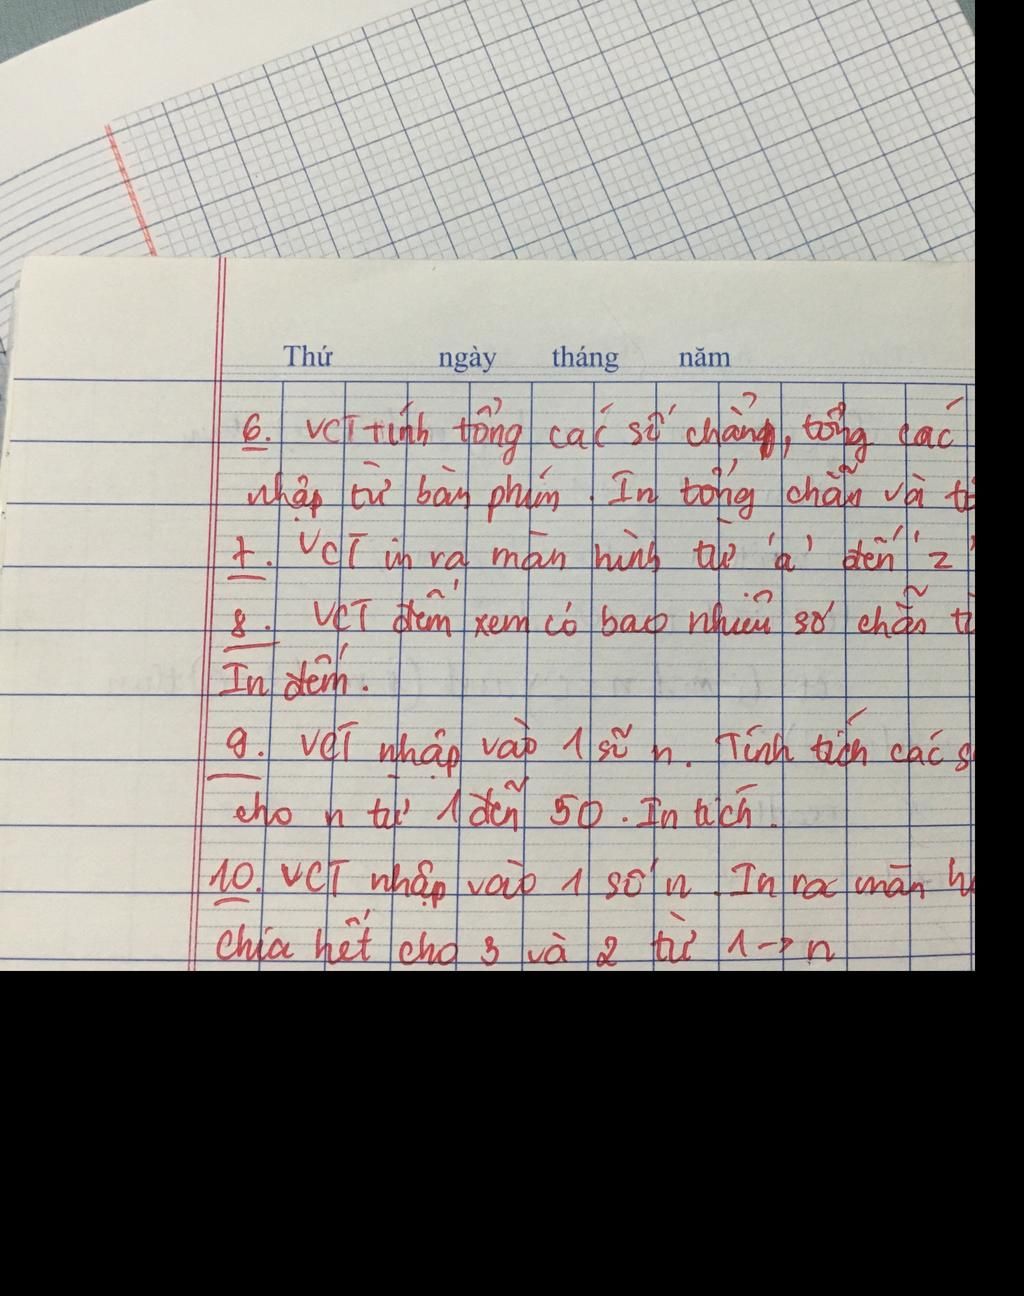 Thứ ngày tháng năm
6. VCT tính tổng các số chẵn, tổng các
nhập từ bàn phím. In tổng chẵn và
7. VCT in ra màn hình từ 'a' đến 'z'
8. VCT đếm xem có bao nhiêu số chẵn
In đếm.
9. VCT nhập vào 1 số n. Tính tích các
cho n từ 1 đến 50. In tích.
10. VCT nhập vào 1 số n. In ra màn
chia hết cho 3 và 2 từ 1 → n